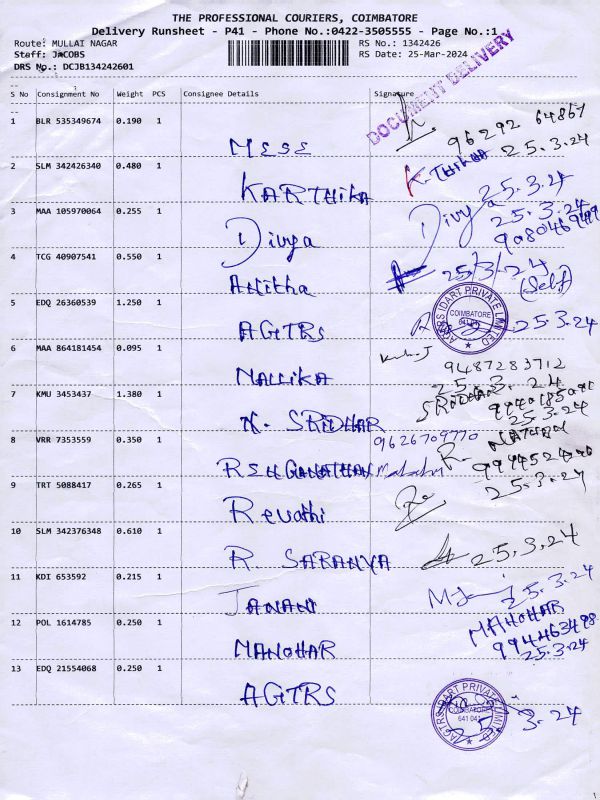 THE PROFESSIONAL COURIERS, COIMBATORE
Delivery Runsheet - P41 - Phone No.:0422-3505555 - Page No.:1
Route: MULLAI NAGAR
RS No.: 1342426
Staff: JACOBS
RS Date: 25-Mar-2024
DRS No.: DCJB134242601
DOCUMENT DELIVERY
S No Consignment No Weight PCS Consignee Details Signature
1 BLR 535349674 0.190 1
96292 64867
MESE
25.3.24
2 SLM 342426340 0.480 1
K. THIKHA
KARTHIKA
25.3.24
3 MAA 105970064 0.255 1
Divya
25.3.24
Divya
4 TCG 40907541 0.550 1
25/3/24
Anitha
(Self)
5 EDQ 26360539 1.250 1
IDART PRIVATE LIMITED
COIMBATORE
25.3.24
AGTRS
6 MAA 864181454 0.095 1
9487283712
MALLIKA
25.3.24
7 KMU 3453437 1.380 1
SRIDHAR
K. SRIDHAR
25.3.24
8 VRR 7353559 0.350 1
9626709770
R.
25.3.24
9 TRT 5088417 0.265 1
Revathi
10 SLM 342376348 0.610 1
25.3.24
R. SARANYA
11 KDI 653592 0.215 1
25.3.24
JANANI
12 POL 1614785 0.250 1
MANOHAR
994463498
MANOHAR
25.3.24
13 EDQ 21554068 0.250 1
AGTRS
AGTRS IDART PRIVATE LIMITED
COIMBATORE
641 041
25.3.24